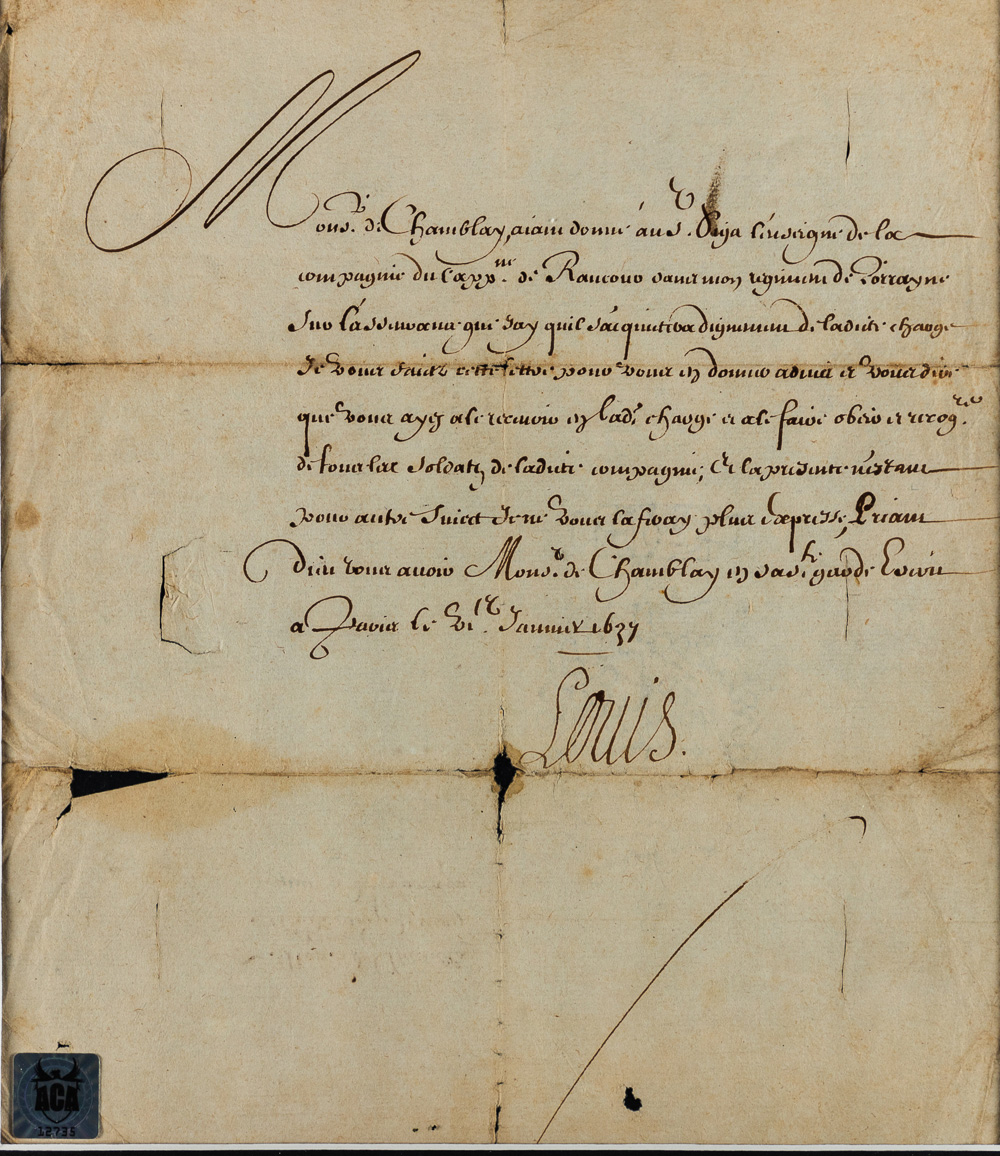 Monsr. de Chamblay, aiant donné au Sr. l'enseigne de la
compagnie du Cappne. de Rancour dans mon regiment de Lorrayne
Sur l'asseurance que j'ay quil s'acquittera dignement de ladite charge
Je vous escris cette lettre pour vous en donner advis et vous dire
que vous ayez a le recevoir en lad. charge et a le faire obeir et recog.re
de tous les Soldatz de ladite compagnie, Et la presente n'estant
pour autre suiect Je ne vous la feray plus Expresse, Priant
Dieu vous avoir Monsr. de Chamblay en sa Ste. garde Escrit
a Paris le Janvier 1637
Louis.
ACA
12735